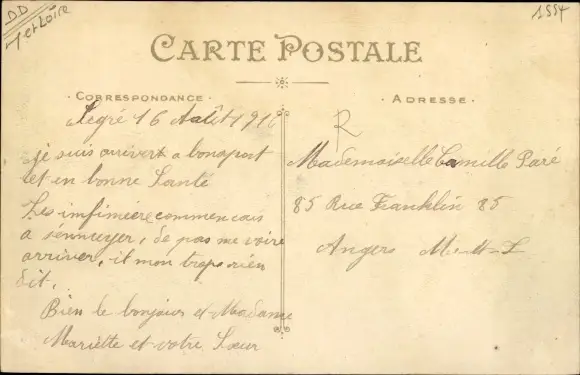 DD
M et Loire
1554
CARTE POSTALE
CORRESPONDANCE
ADRESSE
Segré 16 Août 1916
je suis arrivert a bonaport
et en bonne Santé
Les infimière commencais
a sennuyer, de pas me voire
arriver, il mon trop rien
dit.
Bien le bonjour et Madame
Mariette et votre Sœur
R
Mademoiselle Camille Paré
85 Rue Franklin 85
Angers M-et-L